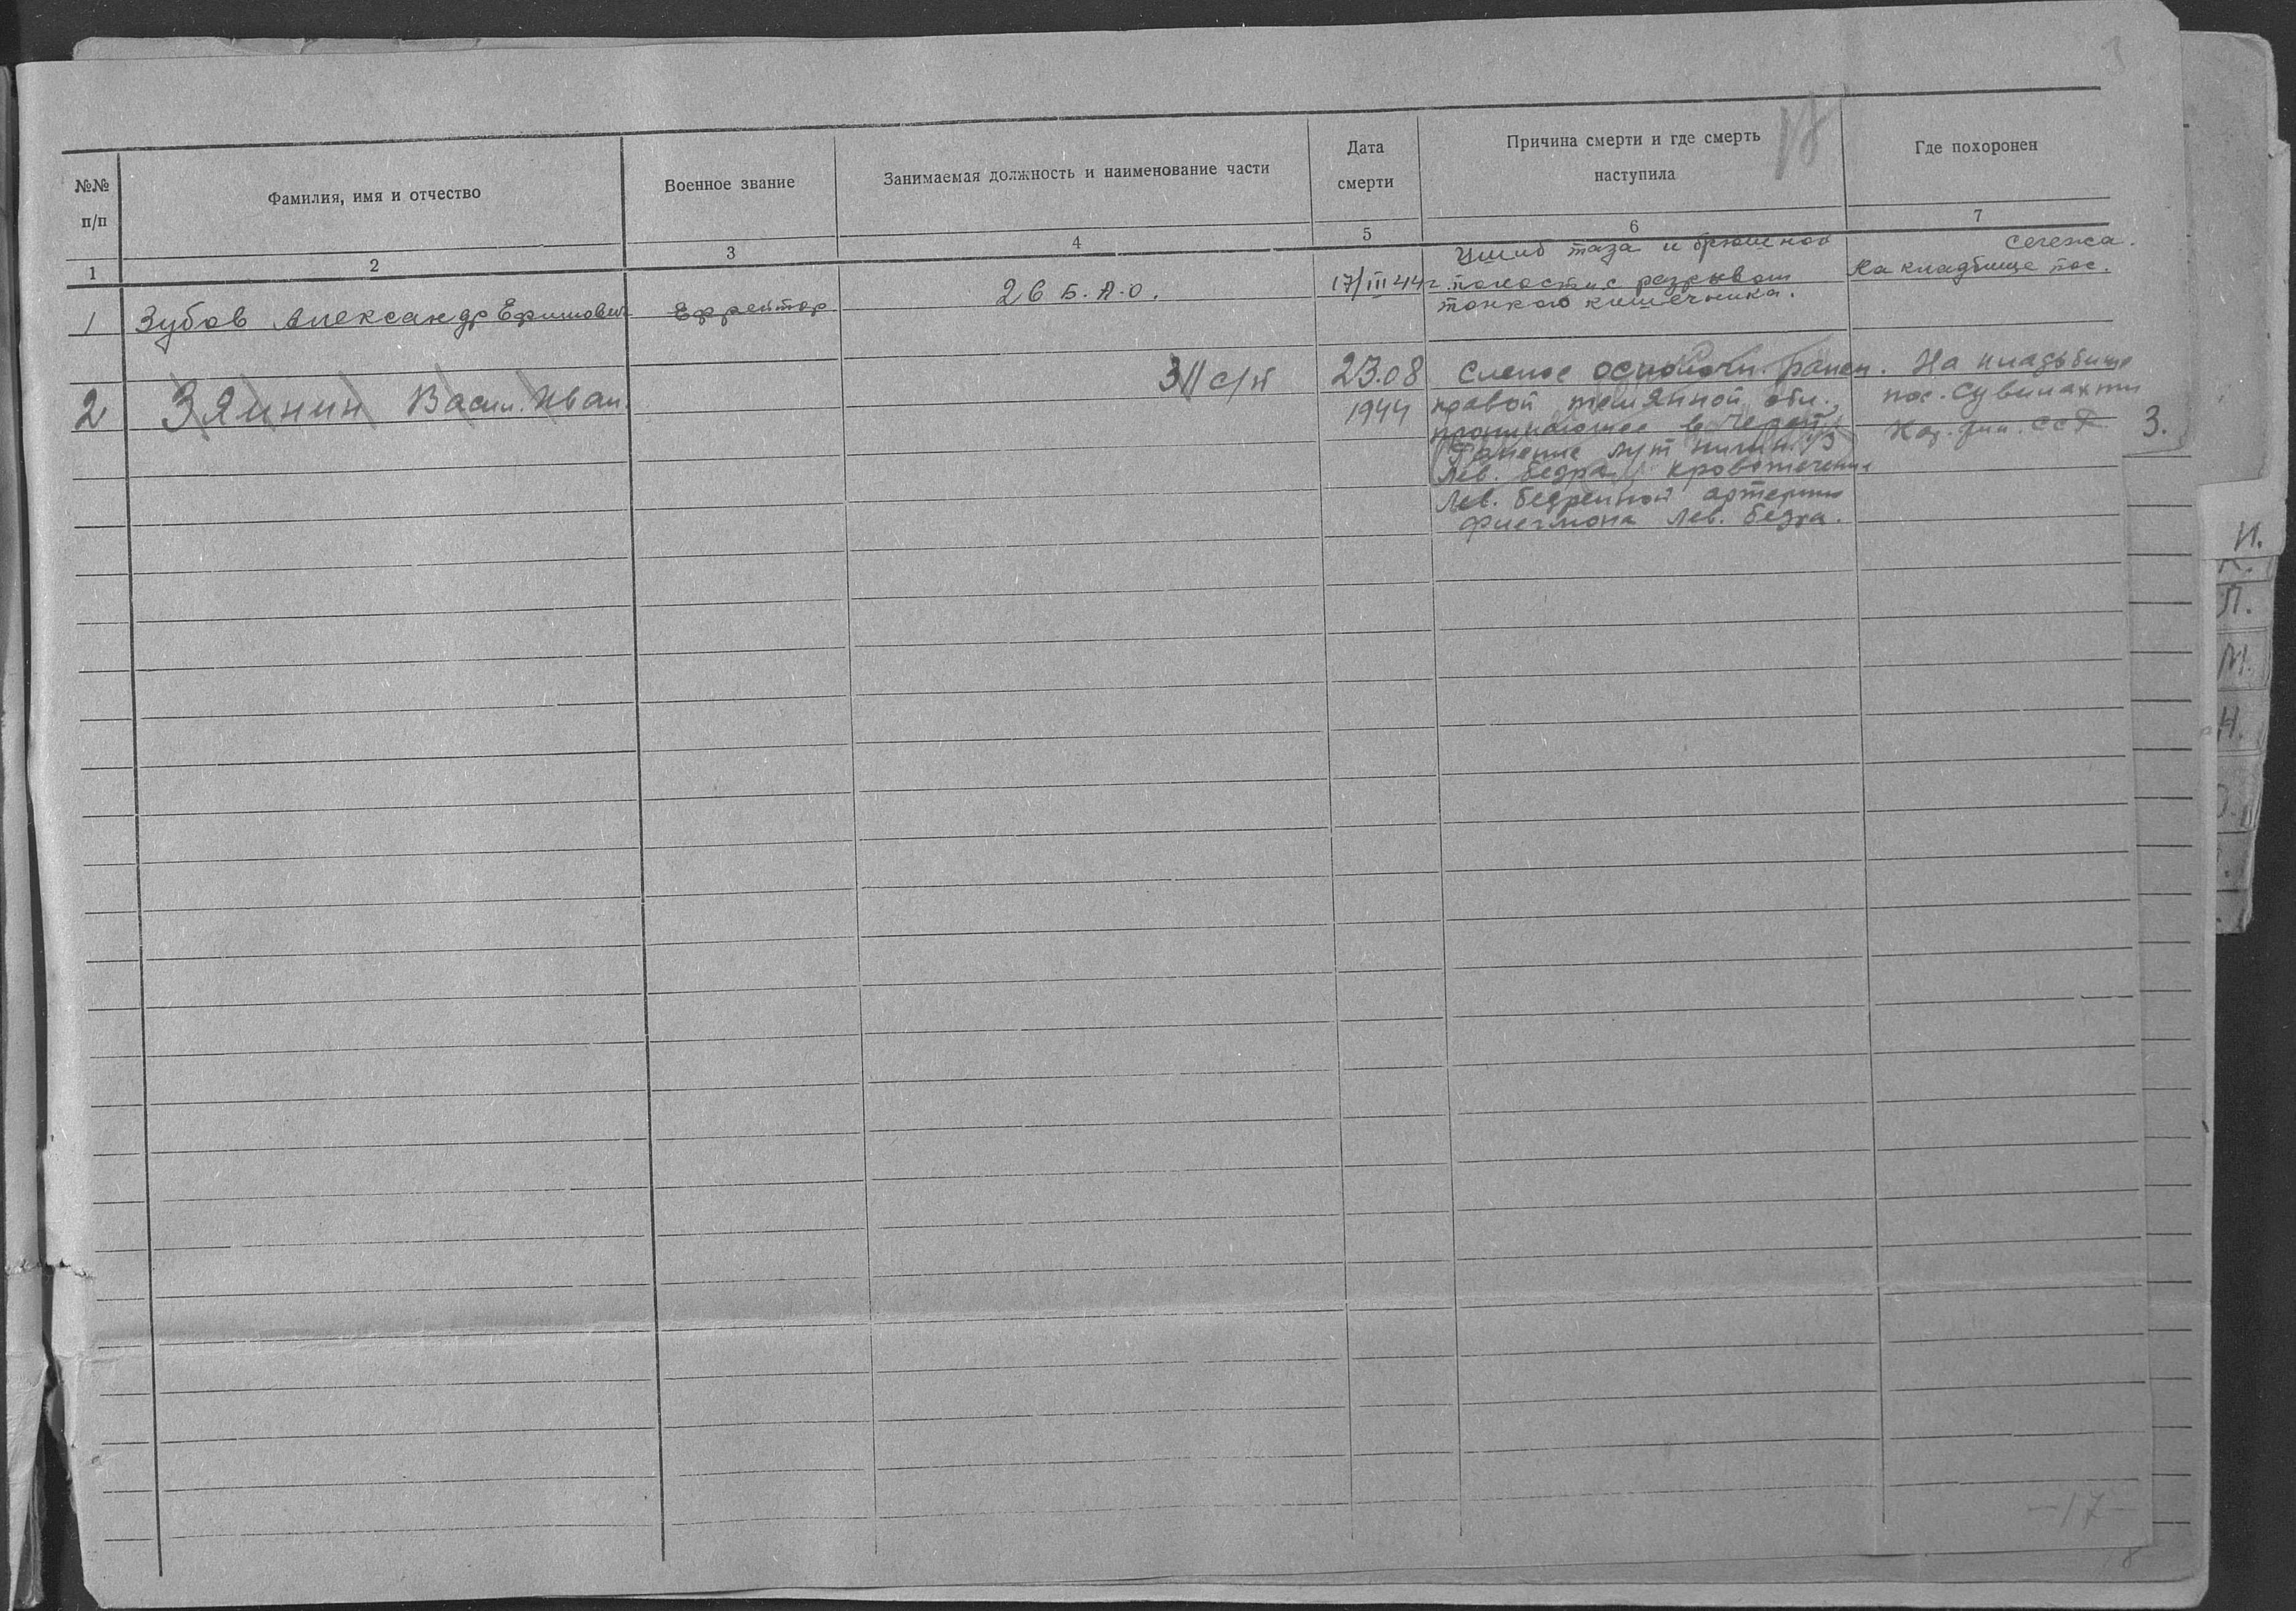 З
18
№№ п/п
Фамилия, имя и отчество
Военное звание
Занимаемая должность и наименование части
Дата смерти
Причина смерти и где смерть наступила
Где похоронен
1 2 3 4 5 6 7
1 Зубов Александр Ефимович Ефрейтор 26 Б.А.О. 17/III 44г.
Ушиб таза и брюшной
полости с разрывом
тонкого кишечника.
Сегежа.
На кладбище пос.
2 Зяинин Васил. Иван. 311 с/п 23.08
1944
Слепое осколочн. ранен.
правой теменной обл.,
проникающее в череп
Ранение
лев. бедра, кровотечение
Лев. бедренной артерии
флегмона лев. бедра.
На кладбище
пос. Сувилахти
Кар. фин. ССР
З.
И.
К.
Л.
М.
Н.
О.
-17-
18